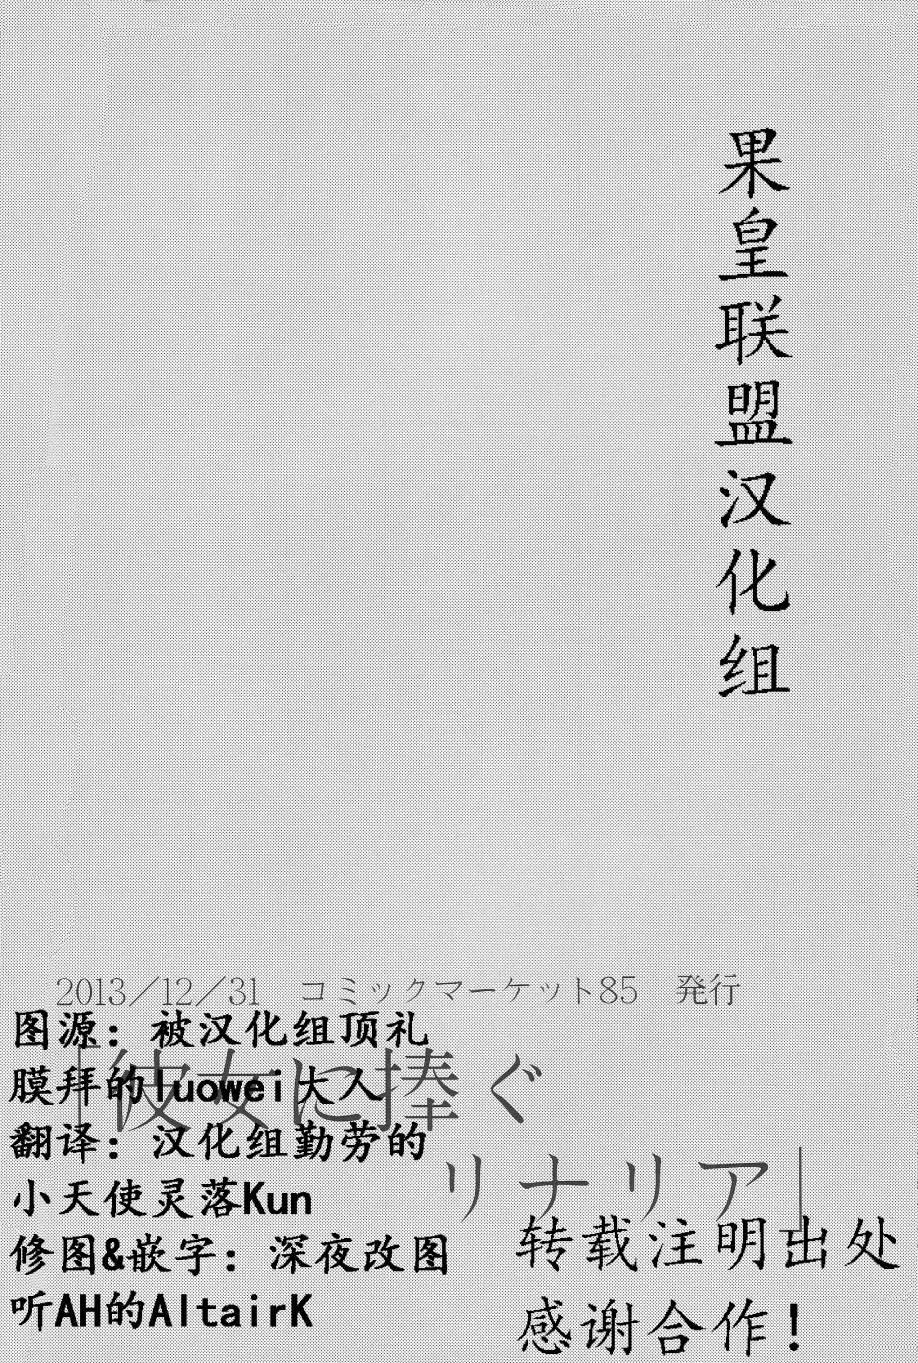 果皇联盟汉化组
2013／12／31　コミックマーケット85　発行
「彼女に捧ぐ
リナリア」
图源：被汉化组顶礼
膜拜的luowei大人
翻译：汉化组勤劳的
小天使灵落Kun
修图&嵌字：深夜改图
听AH的AltairK
转载注明出处
感谢合作！